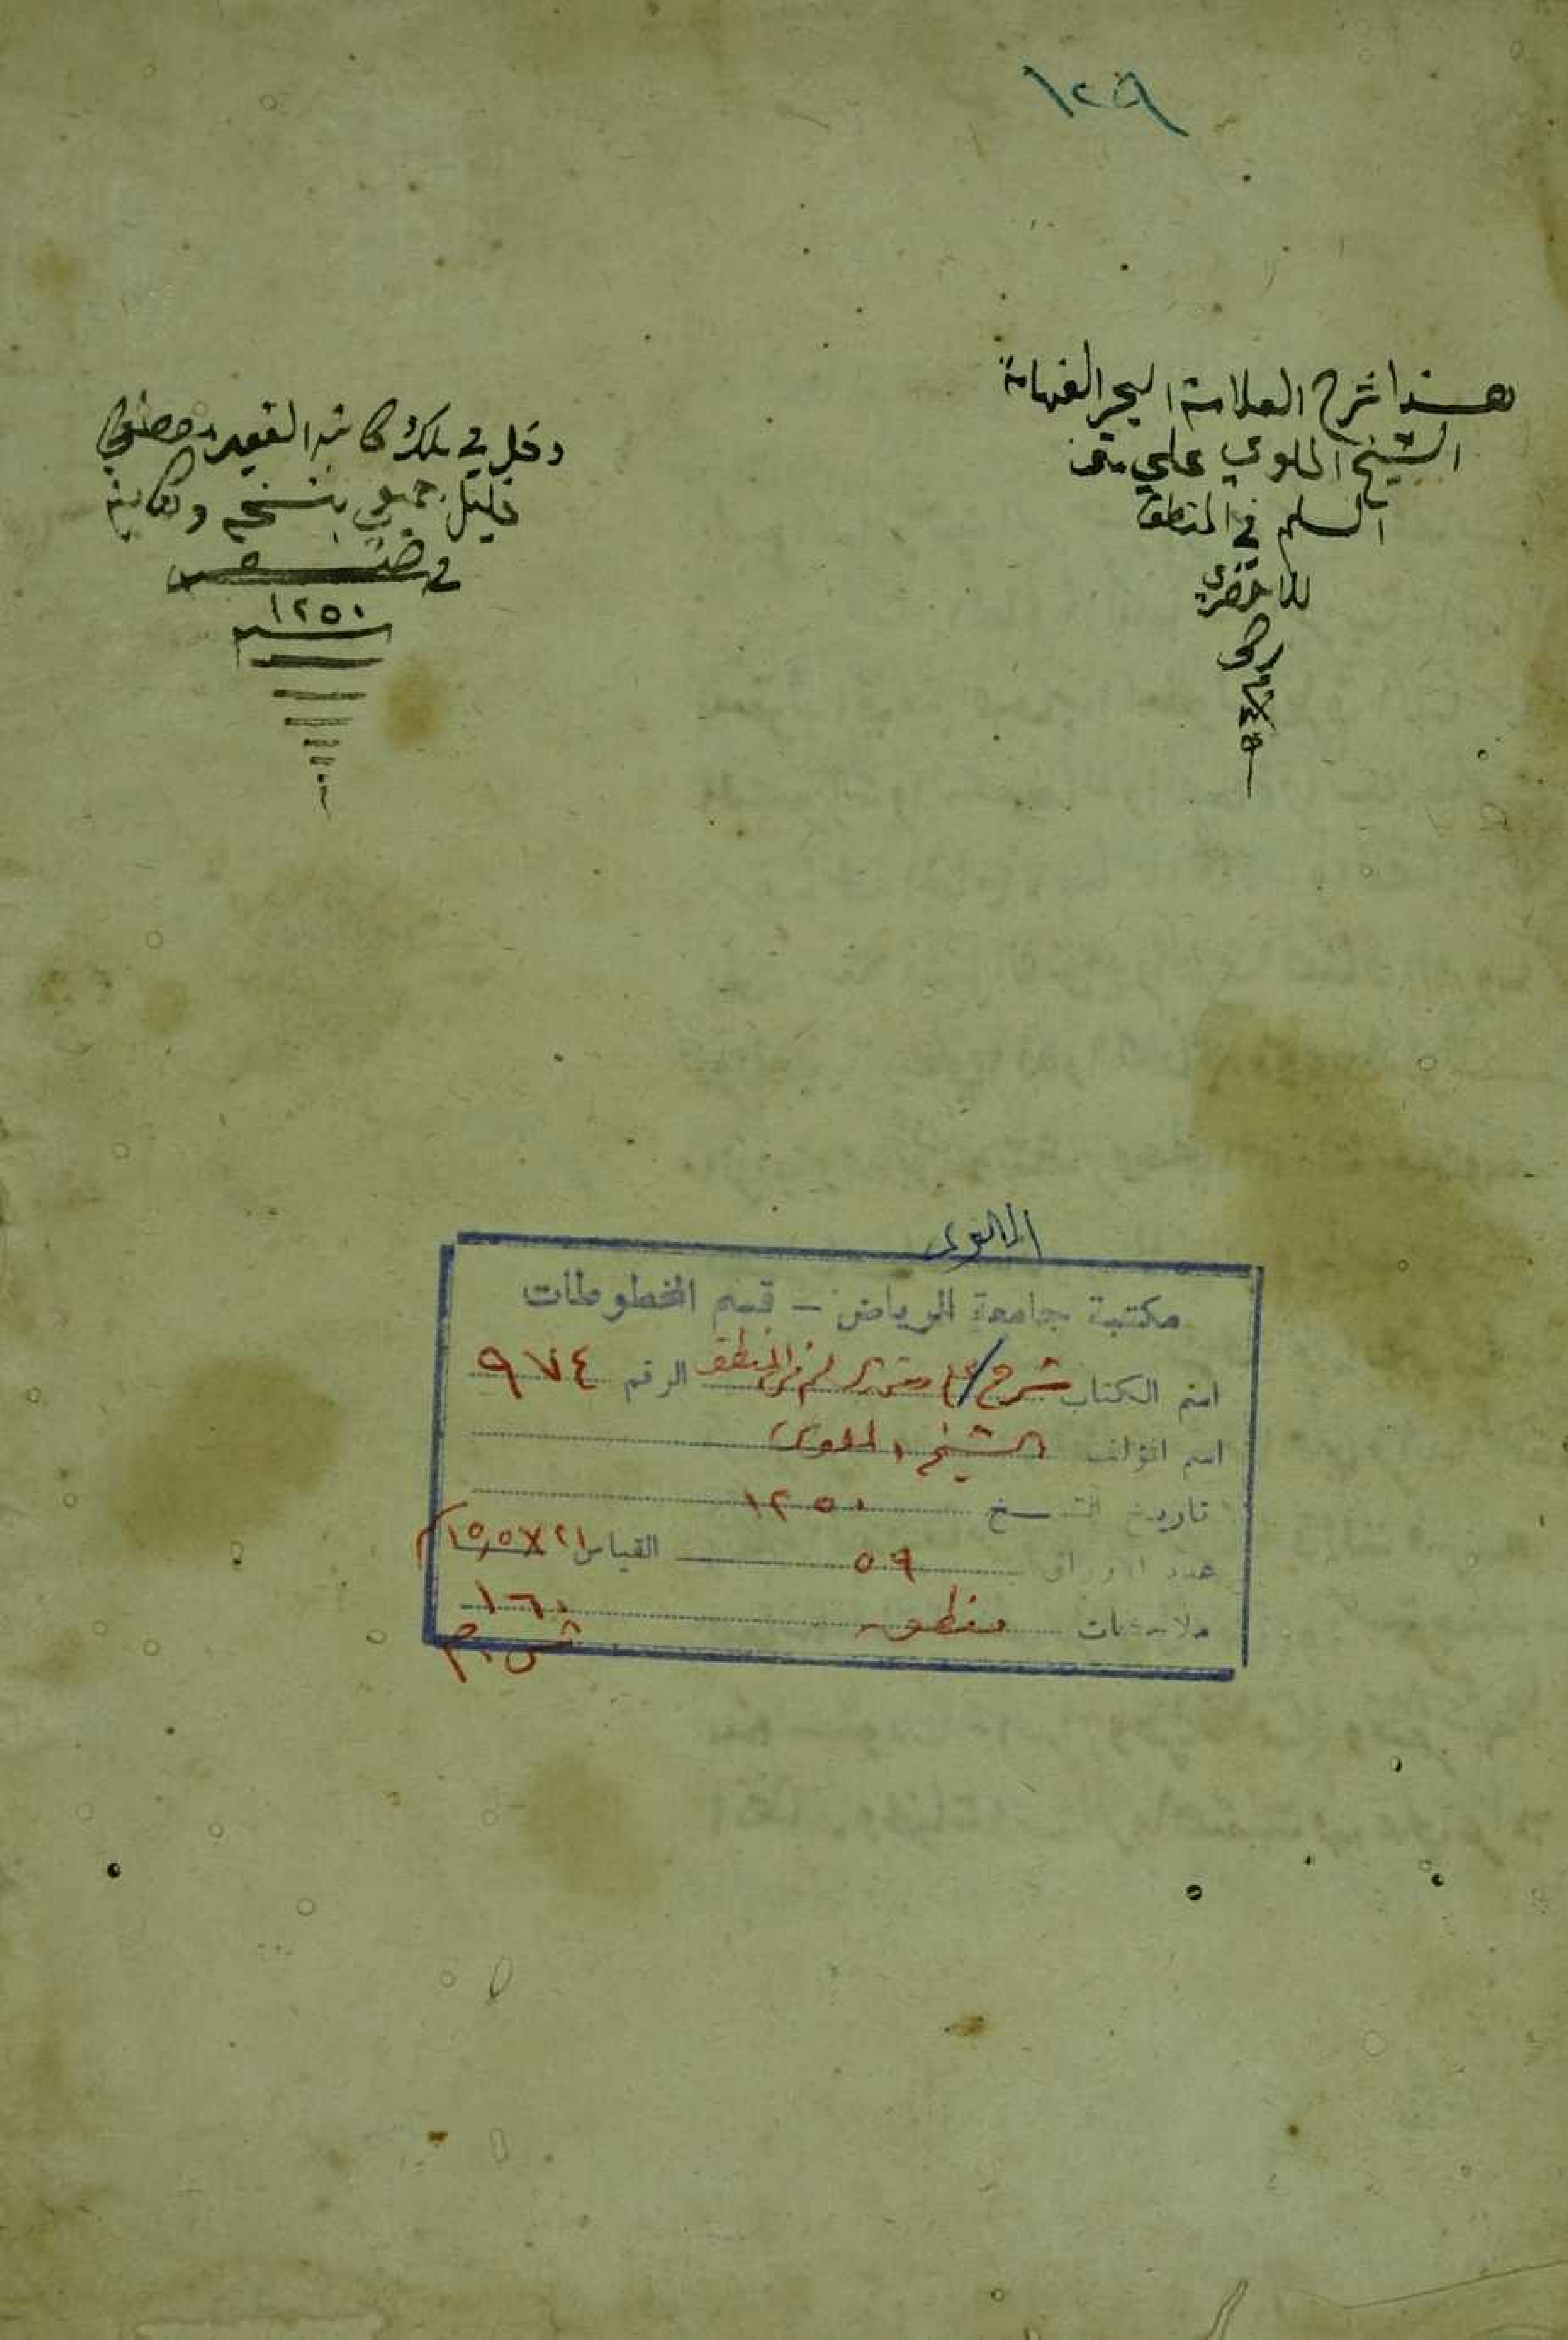 ١٢٩
هذا شرح العلامة البحر الفهامة
الشيخ الملوي علي متن
السلم في المنطق
للاخضري
دخل في ملك كاتبه الفقير مصطفي
خليل
في
١٢٥٠
الملوى
مكتبة جامعة الرياض - قسم المخطوطات
اسم الكتاب شرح متن السلم فى المنطق الرقم ٩٧٤
اسم المؤلف الشيخ الملوى
تاريخ النسخ ١٢٥٠
عدد الاوراق ٥٩ القياس ٢١×١٥٫٥
ملاحظات منطق ١٦٠
ش.م